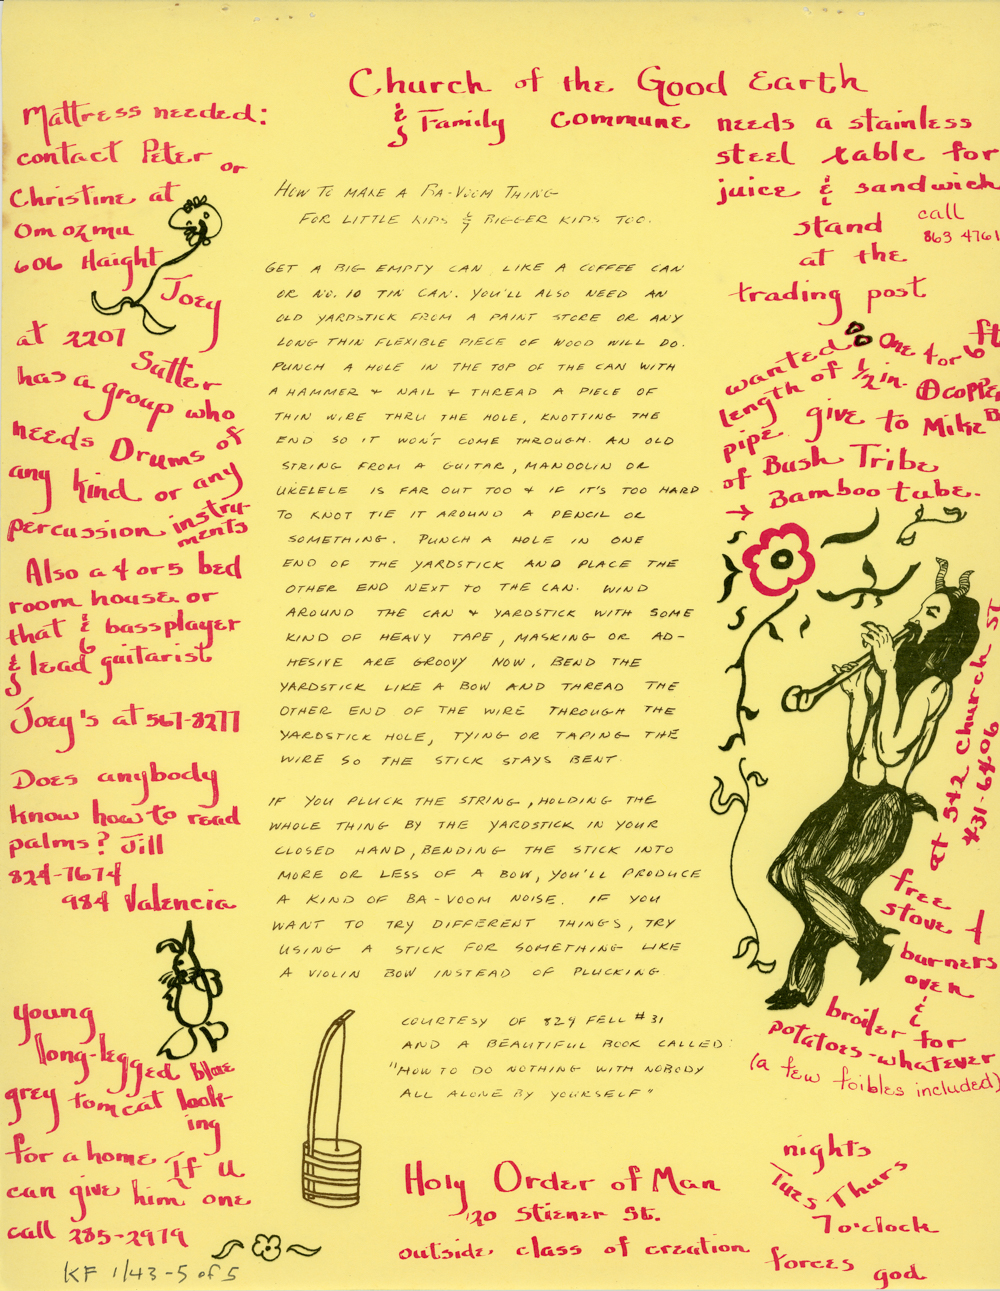 Church of the Good Earth
& Family Commune needs a stainless
steel table for
juice & sandwich
stand call
863 4761
at the
trading post
Mattress needed:
contact Peter or
Christine at
Om ozmu
606 Haight
Joey
at 2207
Sutter
has a group who
needs Drums of
any kind or any
percussion instru-
ments
Also a 4 or 5 bed
room house or
that & bassplayer
& lead guitarist
Joey's at 567-8277
Does anybody
know how to read
palms? Jill
824-7674
984 Valencia
young
long-legged blue
grey tomcat look-
ing
for a home If u
can give him one
call 285-2979
HOW TO MAKE A BA-VOOM THING
FOR LITTLE KIDS & BIGGER KIDS TOO.
GET A BIG EMPTY CAN LIKE A COFFEE CAN
OR NO. 10 TIN CAN. YOU'LL ALSO NEED AN
OLD YARDSTICK FROM A PAINT STORE OR ANY
LONG THIN FLEXIBLE PIECE OF WOOD WILL DO.
PUNCH A HOLE IN THE TOP OF THE CAN WITH
A HAMMER & NAIL & THREAD A PIECE OF
THIN WIRE THRU THE HOLE, KNOTTING THE
END SO IT WON'T COME THROUGH. AN OLD
STRING FROM A GUITAR, MANDOLIN OR
UKELELE IS FAR OUT TOO & IF IT'S TOO HARD
TO KNOT TIE IT AROUND A PENCIL OR
SOMETHING. PUNCH A HOLE IN ONE
END OF THE YARDSTICK AND PLACE THE
OTHER END NEXT TO THE CAN. WIND
AROUND THE CAN & YARDSTICK WITH SOME
KIND OF HEAVY TAPE, MASKING OR AD-
HESIVE ARE GROOVY NOW, BEND THE
YARDSTICK LIKE A BOW AND THREAD THE
OTHER END OF THE WIRE THROUGH THE
YARDSTICK HOLE, TYING OR TAPING THE
WIRE SO THE STICK STAYS BENT.
IF YOU PLUCK THE STRING, HOLDING THE
WHOLE THING BY THE YARDSTICK IN YOUR
CLOSED HAND, BENDING THE STICK INTO
MORE OR LESS OF A BOW, YOU'LL PRODUCE
A KIND OF BA-VOOM NOISE. IF YOU
WANT TO TRY DIFFERENT THINGS, TRY
USING A STICK FOR SOMETHING LIKE
A VIOLIN BOW INSTEAD OF PLUCKING
COURTESY OF 829 FELL #31
AND A BEAUTIFUL BOOK CALLED:
"HOW TO DO NOTHING WITH NOBODY
ALL ALONE BY YOURSELF"
wanted One 4 or 6 ft
length of 1/2 in. copper
pipe. give to Mike B
of Bush Tribe
→ Bamboo tube.
at 542 Church St
431-6406
free
stove 4
burners
oven
&
broiler for
potatoes-whatever
(a few foibles included)
Holy Order of Man
20 Stiener St.
outside class of creation
nights
Tues Thurs
7 o'clock
forces god
KF 1/43-5 of 5